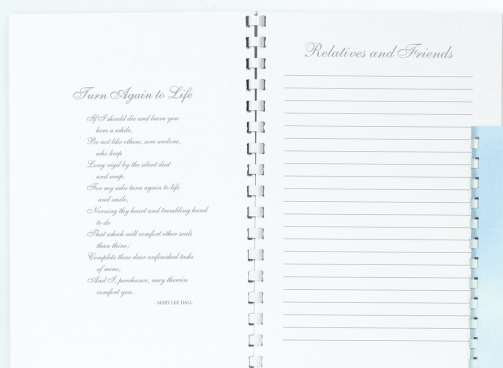 Turn Again to Life
If I should die and leave you
here a while,
Be not like others, sore undone,
who keep
Long vigil by the silent dust
and weep.
For my sake turn again to life
and smile,
Nerving thy heart and trembling hand
to do
That which will comfort other souls
than thine;
Complete these dear unfinished tasks
of mine,
And I, perchance, may therein
comfort you.
- MARY LEE HALL
Relatives and Friends